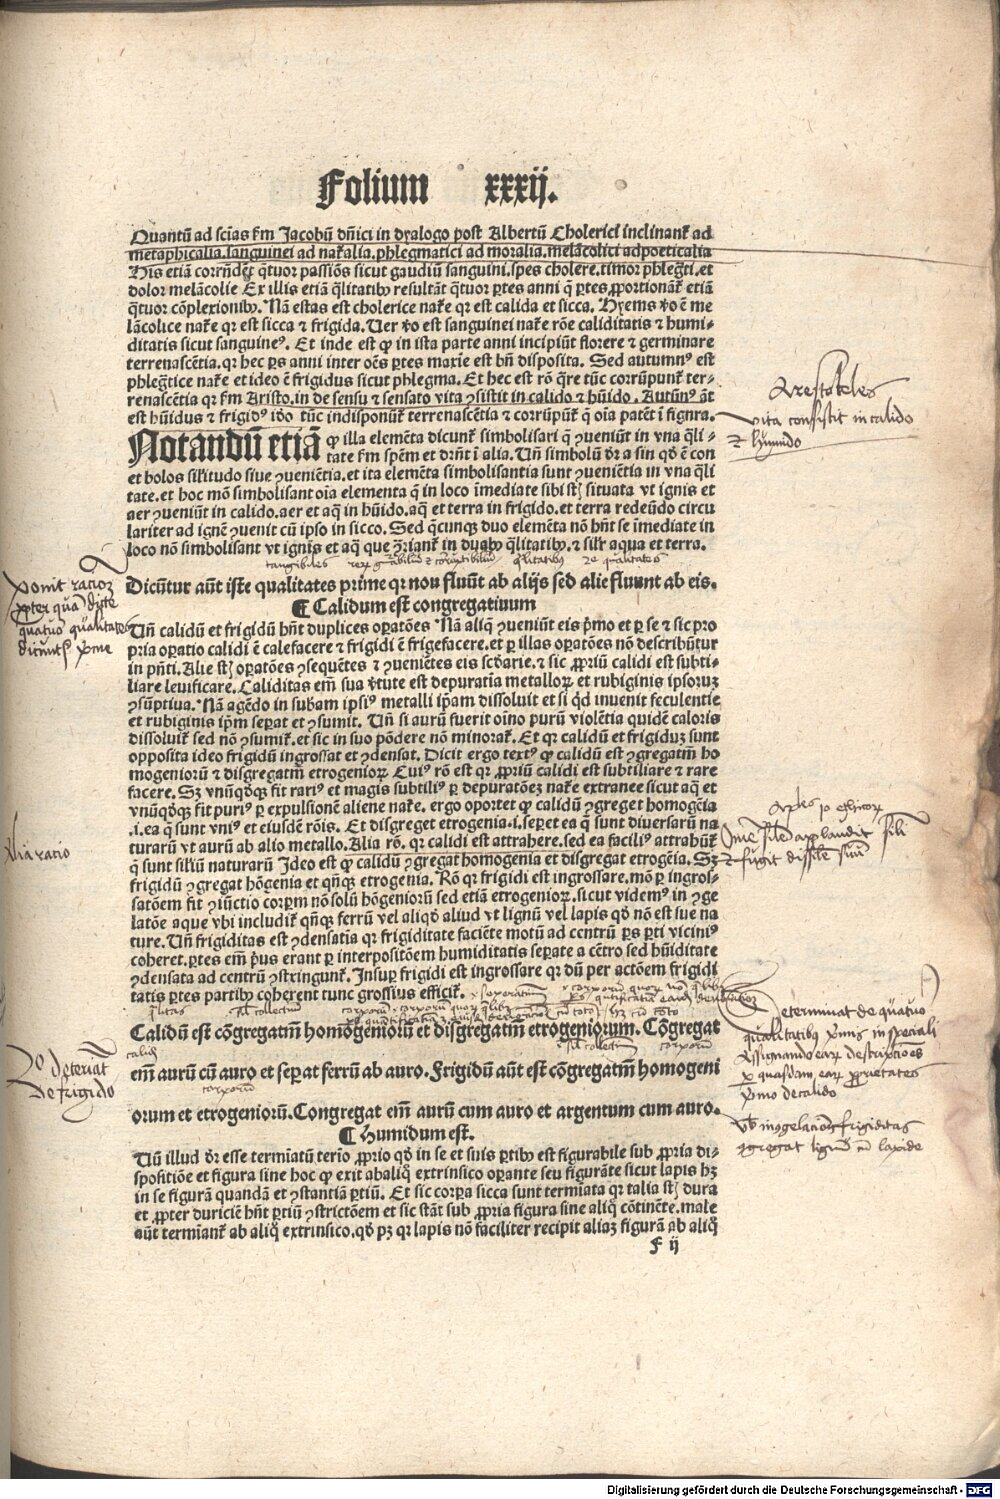 Folium xxxij.
Quantū ad sciās s̄m Jacobū dn̄ici in dyalogo post Albertū Cholerici inclinant̄ ad
metaphicalia.sanguinei ad nat̄alia.phlegmatici ad moralia.melācolici adpoeticalia
His etiā corrn̄dēt q̄tuor passiōs sicut gaudiū sanguini.spes cholere.timor phleḡti.et
dolor melācolie Ex illis etiā q̄litatibꝰ resultāt q̄tuor ꝑtes anni q̄ ꝑtes ꝓportionant̄ etiā
q̄tuor cōplexionibꝰ. Nā estas est cholerice nat̄e qꝛ est calida et sicca. Hyems v̄o ē me
lācolice nat̄e qꝛ est sicca ⁊ frigida. Uer v̄o est sanguinei nat̄e rōe caliditatis ⁊ humi-
ditatis sicut sanguineꝰ. Et inde est ꝙ in ista parte anni incipiūt florere ⁊ germinare
terrenascētia.qꝛ hec ꝑs anni inter oēs ꝑtes maxīe est bn̄ disposita. Sed autumnꝰ est
phleḡtice nat̄e et ideo ē frigidus sicut phlegma. Et hec est rō q̄re tūc corrūpunt̄ ter-
renascētia qꝛ s̄m Aristo.in de sensu ⁊ sensato vita ꝯsistit in calido ⁊ hūido. Autūnꝰ āt
est hūidus ⁊ frigidꝰ iō tūc indisponūt̄ terrenascētia ⁊ corrūpūt̄ q̄ oīa patēt ī figura.
Notandū etiā ꝙ illa elemēta dicunt̄ simbolisari q̄ ꝯueniūt in vna q̄li-
tate s̄m spēm et dr̄nt ī alia. Un̄ simbolū dr̄ a sin qd̄ ē con
et bolos silitudo siue ꝯueniētia.et ita elemēta simbolisantia sunt ꝯueniētia in vna q̄li
tate.et hoc mō simbolisant oīa elementa q̄ in loco īmediate sibi st̄ situata vt ignis et
aer ꝯueniūt in calido.aer et aq̄ in hūido.aq̄ et terra in frigido.et terra redeūdo circu
lariter ad ignē ꝯuenit cū ipso in sicco. Sed q̄cunqꝫ duo elemēta nō hn̄t se īmediate in
loco nō simbolisant vt ignis et aq̄ que ꝯriant̄ in duabꝰ q̄litatibꝰ.⁊ silr̄ aqua et terra.
Dicūtur aūt iste qualitates prime qꝛ nou fluūt ab alijs sed alie fluunt ab eis.
¶ Calidum est congregatiuum
Un̄ calidū et frigidū hn̄t duplices oꝑatōes Nā aliq̄ ꝯueniūt eis p̄mo et ꝑ se ⁊ sic pro
pria oꝑatio calidi ē calefacere ⁊ frigidi ē frigefacere.et ꝑ illas oꝑatōes nō describūtur
in pn̄ti. Alie st̄ oꝑatōes ꝯsequētes ⁊ ꝯueniētes eis scd̄arie.⁊ sic ꝓpriū calidi est subti-
liare leuificare. Caliditas em̄ sua v̄tute est depuratīa metallorꝫ et rubiginis ipsoruꝫ
ꝯsūptiua. Nā agēdo in subam ipsiꝰ metalli ip̄am dissoluit et si qd̄ inuenit feculentie
et rubiginis ip̄m seꝑat et ꝯsumit. Un̄ si aurū fuerit oīno purū violētia quidē caloris
dissoluit̄ sed nō ꝯsumit̄.et sic in suo pōdere nō minorat̄. Et qꝛ calidū et frigiduꝫ sunt
opposita ideo frigidū ingrossat et ꝯdensat. Dicit ergo textꝰ ꝙ calidū est ꝯgregatīm ho
mogeniorū ⁊ disgregatīm etrogeniorꝫ Cuiꝰ rō est qꝛ ꝓpriū calidi est subtiliare ⁊ rare
facere. Sꝫ vnūqd̄qꝫ fit rariꝰ et magis subtiliꝰ ꝑ depuratōeꝫ nat̄e extranee sicut aq̄ et
vnūqd̄qꝫ fit puriꝰ ꝑ expulsionē aliene nat̄e. ergo oportet ꝙ calidū ꝯgreget homogēia
.i.ea q̄ sunt vniꝰ et eiusdē rōis. Et disgreget etrogenia.i.seꝑet ea q̄ sunt diuersarū na
turarū vt aurū ab alio metallo. Alia rō. qꝛ calidi est attrahere.sed ea faciliꝰ attrahūt̄
q̄ sunt siliū naturarū Ideo est ꝙ calidū ꝯgregat homogenia et disgregat etrogēia. Sꝫ
frigidū ꝯgregat hōgenia et qn̄qꝫ etrogenia. Rō qꝛ frigidi est ingrossare.mō ꝑ ingros-
satōem fit ꝯiūctio corꝑm nō solū hōgeniorū sed etiā etrogeniorꝫ.sicut videmꝰ in ꝯge
latōe aque vbi includit̄ qn̄qꝫ ferrū vel aliqd̄ aliud vt lignū vel lapis qd̄ nō est sue na
ture. Un̄ frigiditas est ꝯdensatīa qꝛ frigiditate faciēte motū ad centrū ꝑs ꝑti viciniꝰ
coheret.ꝑtes em̄ pꝰus erant ꝑ interpositōem humiditatis seꝑate a cētro sed hūiditate
ꝯdensata ad centrū ꝯstringunt̄. Insuꝑ frigidi est ingrossare qꝛ dū per actōem frigidi
tatis ꝑtes partibꝰ coherent tunc grossius efficit̄.
Calidū est cōgregatīm homogeniorū et disgregatīm etrogeniorum. Cōgregat
em̄ aurū cū auro et seꝑat ferrū ab auro. Frigidū aūt est cōgregatīm homogeni
orum et etrogeniorū. Congregat em̄ aurū cum auro et argentum cum auro.
¶ Humidum est.
Un̄ illud dr̄ esse termiatū terīo ꝓprio qd̄ in se et suis ꝑtibꝰ est figurabile sub ꝓpria di-
spositiōe et figura sine hoc ꝙ exit abaliq̄ extrinsico oꝑante seu figurāte sicut lapis hꝫ
in se figurā quandā et ꝯstantiā ꝑtiū. Et sic corꝑa sicca sunt termiata qꝛ talia st̄ dura
et ꝓpter duriciē hn̄t ꝑtiū ꝯstrictōem et sic stāt sub ꝓpria figura sine aliq̄ cōtinēte.male
aūt termiant̄ ab aliq̄ extrinsico.qd̄ pꝫ qꝛ lapis nō faciliter recipit aliaꝫ figurā ab aliq̄
F ij
Arestoteles
vita consistit in calido
⁊ humido
ponit racioꝫ
ꝓpter quā dicte
quatuor qualitates
dicunt̄ p̄me
Alia racio
2o deteriat
de frigido
Determinat de quatuor
qualitatibꝰ p̄mis in speciali
Assignando earꝫ descriptiōes
ꝑ quasdam earꝫ ꝓprietates
p̄imo de calido
Digitalisierung gefördert durch die Deutsche Forschungsgemeinschaft - DFG